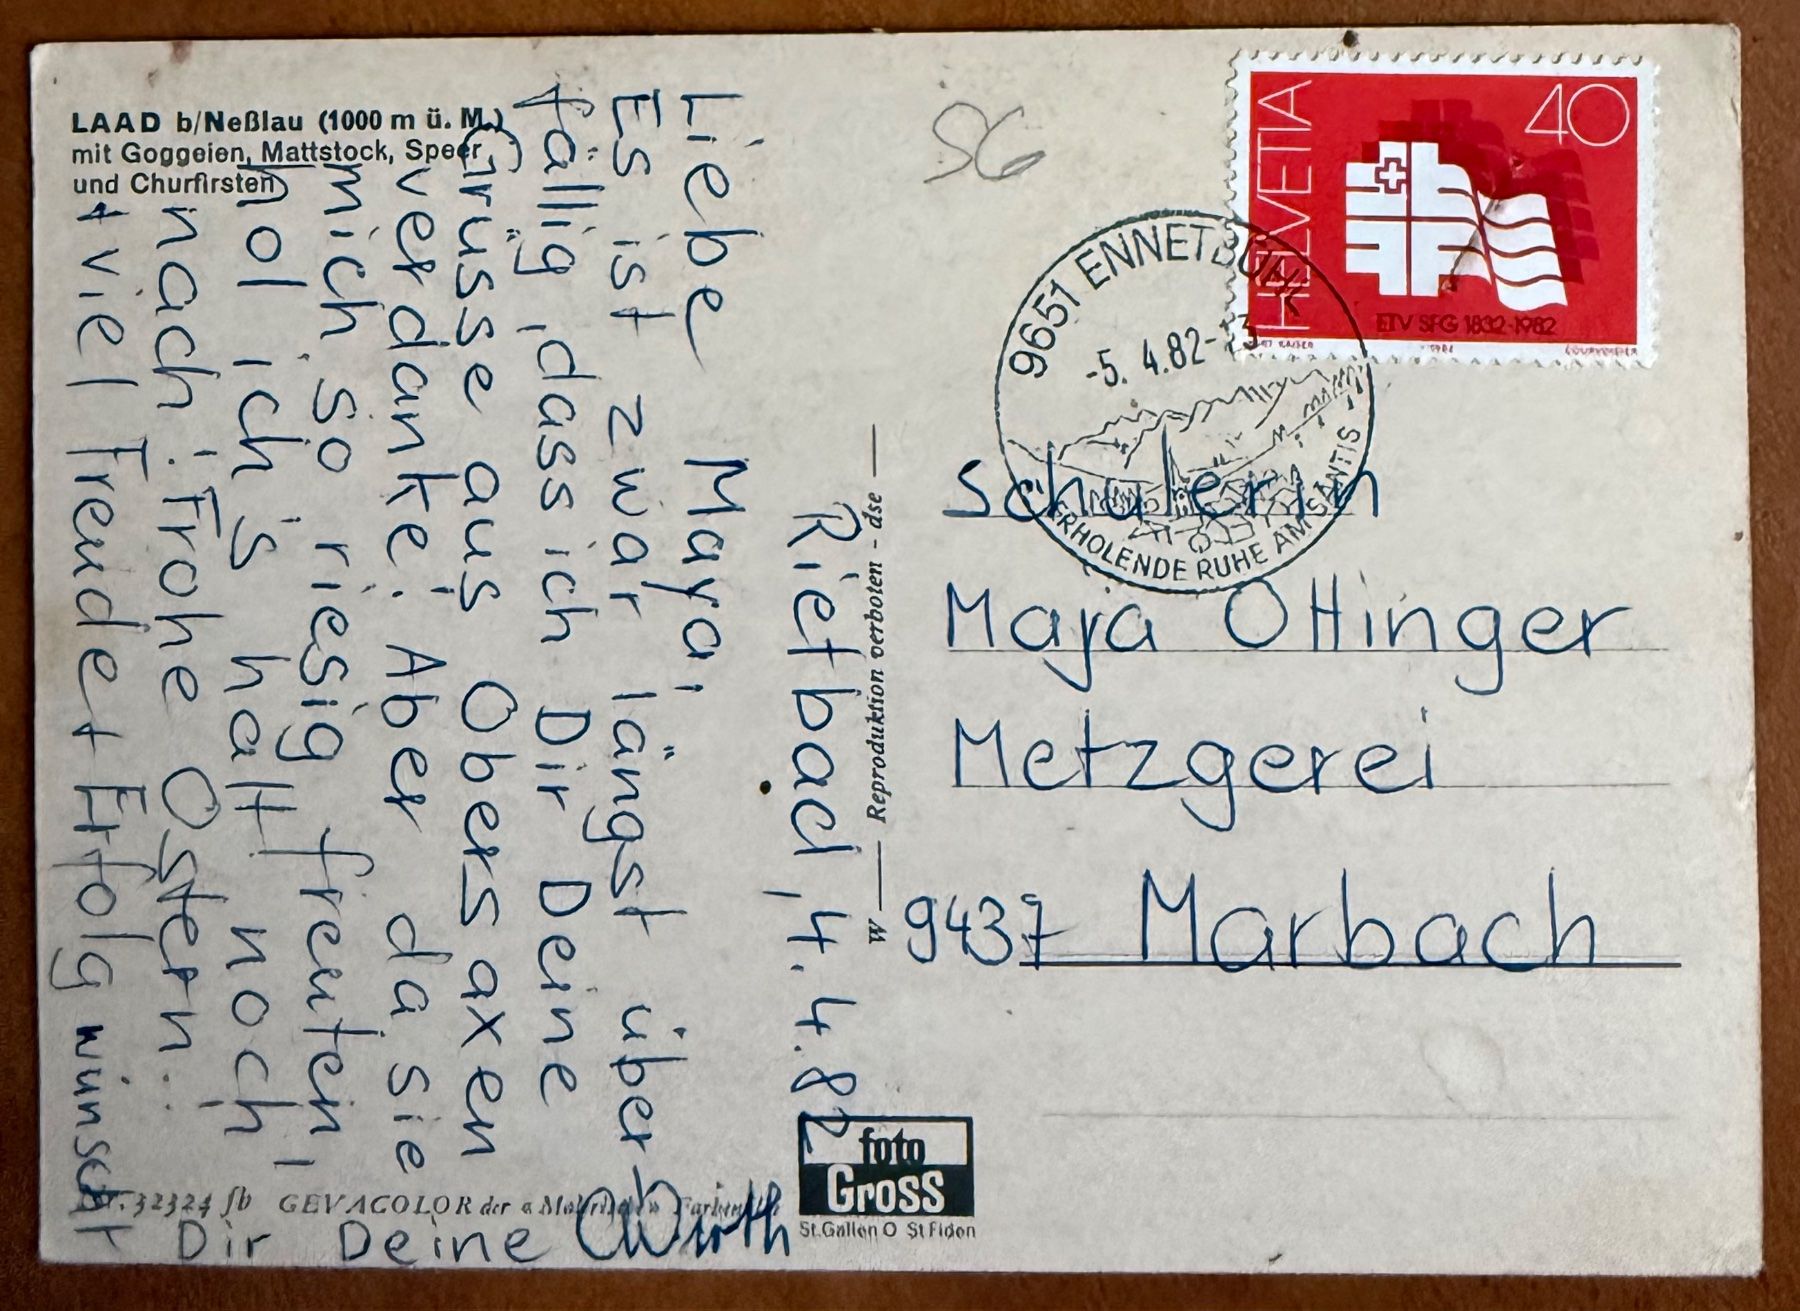 LAAD b/Neßlau (1000 m ü. M.)
mit Goggeien, Mattstock, Speer
und Churfirsten
Rietbad, 4. 4. 82
Liebe Maya!
Es ist zwar längst über-
fällig, dass ich Dir Deine
Grüsse aus Obersaxen
verdanke! Aber da sie
mich so riesig freuten,
hol ich's halt noch
nach! Frohe Ostern
+ viel Freude + Erfolg wünscht
Dir Deine CWirth
Nr. 32324 fb GEVACOLOR der
w — Reproduktion verboten - dse —
foto
Gross
St.Gallen O St Fiden
SG
HELVETIA
40
ETV SFG 1832-1982
9651 ENNETBÜHL
-5. 4.82-
ERHOLENDE RUHE AM SÄNTIS
Schülerin
Maja Ottinger
Metzgerei
9437 Marbach